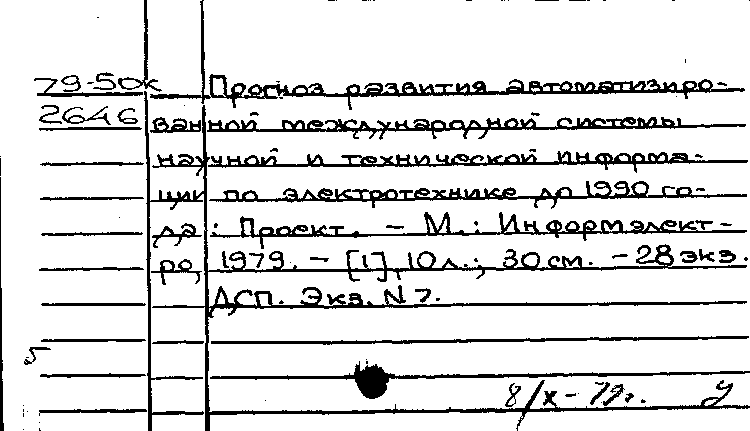 79-50к Прогноз развития автоматизиро-
2646 ванной международной системы
научной и технической информа-
ции по электротехнике до 1990 го-
да : Проект. – М.: Информэлект-
ро, 1979. – [1], 10 л.; 30 см. – 28 экз.
ДСП. Экз. N 7.
5
8/X – 79г. У